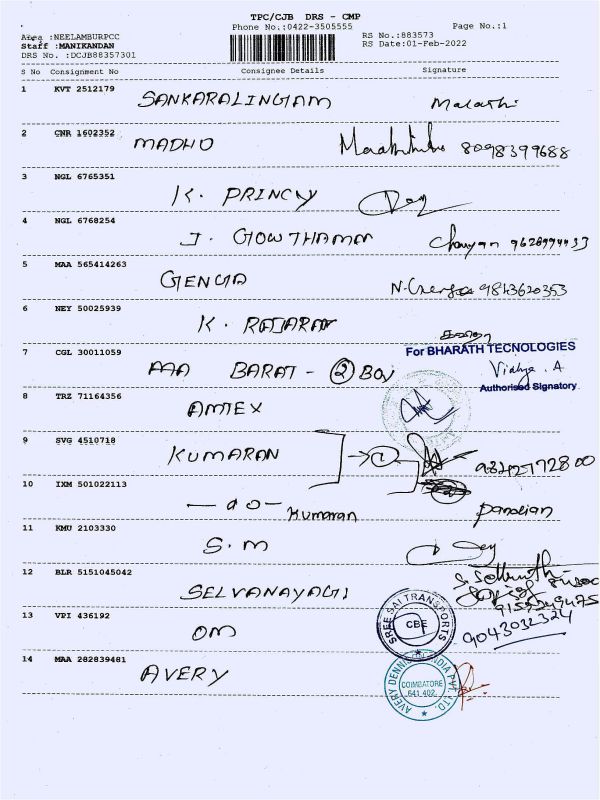 TPC/CJB DRS - CMP
Phone No.:0422-3505555
Page No.:1
Area :NEELAMBURPCC
RS No.:883573
Staff :MANIKANDAN
RS Date:01-Feb-2022
DRS No. :DCJB88357301
S No Consignment No Consignee Details Signature
1 KVT 2512179 SANKARALINGAM Malathi
2 CNR 1602352 MADHU 8098399688
3 NGL 6765351 K. PRINCY
4 NGL 6768254 J. GOWTHAMAN
5 MAA 565414263 GENGA 9843620353
6 NEY 50025939 K. RAJARAN
7 CGL 30011059 AAA BARAT - 2 BOX
For BHARATH TECNOLOGIES
Vidhya . A
Authorised Signatory
8 TRZ 71164356 AMTEX
9 SVG 4510718 KUMARAN
10 IXM 501022113 - do - Kumaran Pandian
11 KMU 2103330 S. M
12 BLR 5151045042 SELVANAYAGI
13 VPI 436192 OM
SREE SAI TRANSPORTS
CBE
9043032324
14 MAA 282839481 AVERY
AVERY DENNISON INDIA PVT. LTD.
COIMBATORE
641 402.